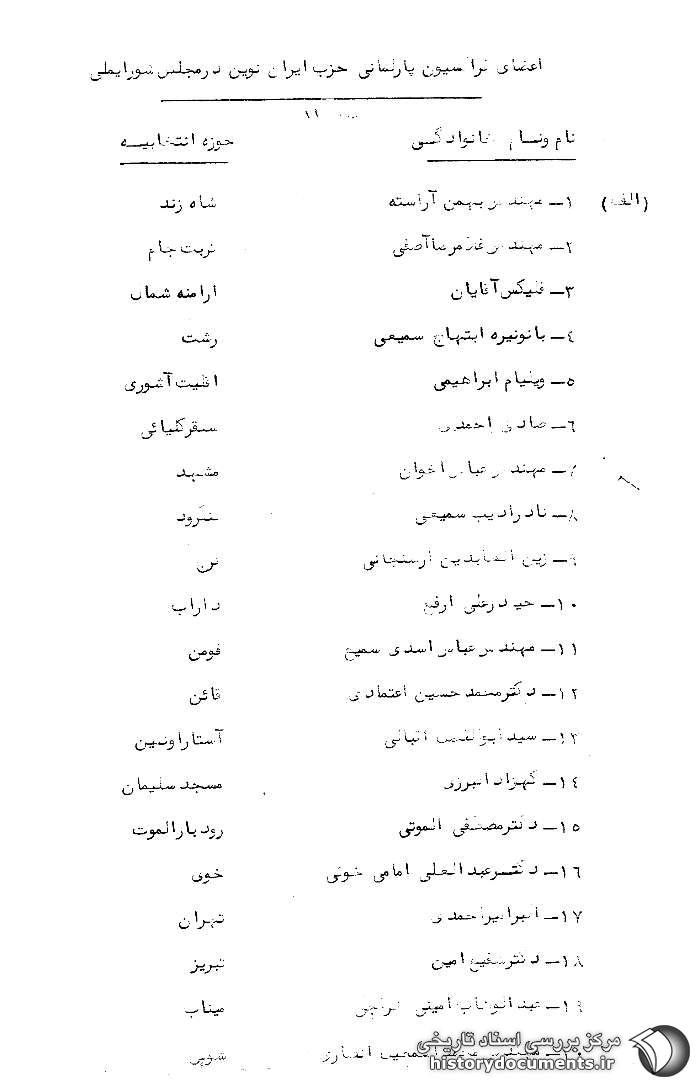 اعضای فراکسیون پارلمانی حزب ایران نوین در مجلس شورایملی
نام ونام خانوادگی حوزه انتخابیه
(الف) ۱ـ مهندس بهمن آراسته شاه زند
۲ـ مهندس غلامرضا آصفی تربت جام
۳ـ فلیکس آقایان ارامنه شمال
۴ـ بانونیره ابتهاج سمیعی رشت
۵ـ ویلیام ابراهیمی اقلیت آشوری
۶ـ صادق احمدی سنقرکلیائی
۷ـ مهندس عباس اخوان مشهد
۸ـ نادرادیب سمیعی لنگرود
۹ـ زین العابدین ارسنجانی
۱۰ـ حیدرعلی ارفع داراب
۱۱ـ مهندس عباس اسدی سمیع فومن
۱۲ـ دکترمحمد حسین اعتمادی قائن
۱۳ـ سید ابوالفضل آستاراونمین
۱۴ـ گهزاد مسجد سلیمان
۱۵ـ دکترمصطفی الموتی رودبارالموت
۱۶ـ دکترعبدالعلی امامی خوئی خوی
۱۷ـ امیراحمدی تهران
۱۸ـ دکترشفیع امین تبریز
۱۹ـ عبدالوهاب امینی میناب
انصاری
مرکز بررسی اسناد تاریخی
historydocuments.ir